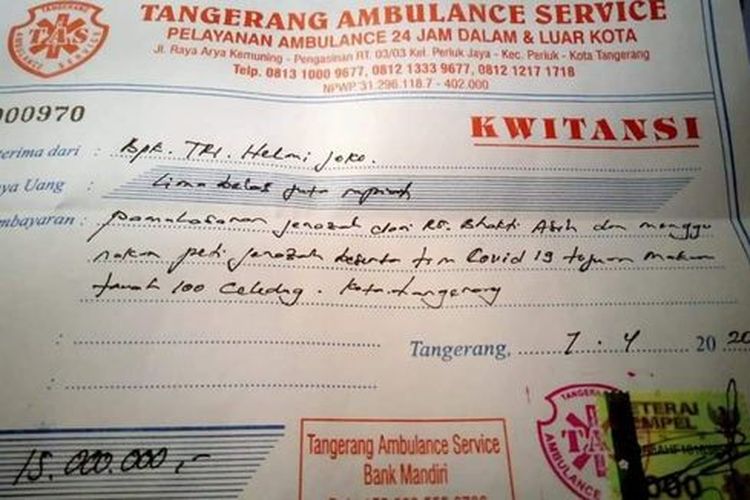 TANGERANG AMBULANCE SERVICE
PELAYANAN AMBULANCE 24 JAM DALAM & LUAR KOTA
Jl. Raya Arya Kemuning - Pengasinan RT. 03/03 Kel. Periuk Jaya - Kec. Periuk - Kota Tangerang
Telp. 0813 1000 9677, 0812 1333 9677, 0812 1217 1718
NPWP 31.296.118.7 - 402.000
TANGERANG
TAS
AMBULANCE SERVICE
000970
KWITANSI
erima dari : Bpk. TRI. Helmi Joko.
ya Uang : Lima belas juta rupiah
mbayaran : pemakasaran jenazah dari RS. Bhakti Asih dan menggu
nakan peti jenazah beserta tim Covid 19 tujuan makam
tanah 100 Celedug. Kota tangerang
Tangerang, 7 . 4 2020
15.000.000,-
Tangerang Ambulance Service
Bank Mandiri
TANGERA
TA
AMBULAN
ETERAI
EMPEL
000